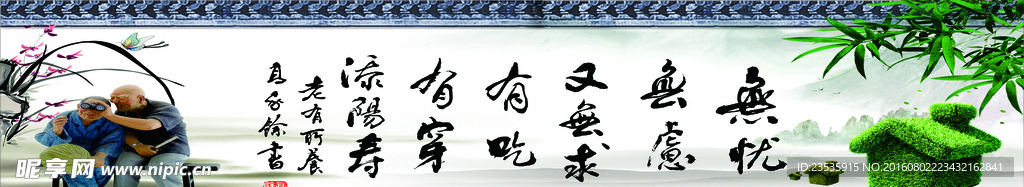 無忧
無慮
又無求
有吃
有穿
添陽寿
老有所养
昵享网 www.nipic.cn
ID:23535915 NO:20160802223432162841